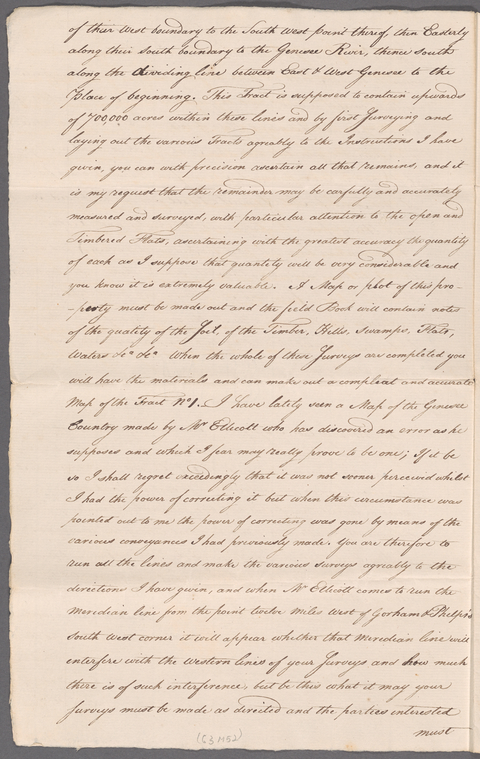 of their West boundary to the South West point thereof, then Easterly
along their South boundary to the Genesee River, thence South
along the dividing line between East & West Genesee to the
Place of beginning. This Tract is supposed to contain upwards
of 700,000 acres within these lines and by first Surveying and
laying out the various Tracts agreably to the Instructions I have
given, you can with precision ascertain all that remains, and it
is my request that the remainder may be carfully and accurately
measured and surveyed, with particular attention to the open and
Timbered Flats, ascertaining with the greatest accuracy the quantity
of each as I suppose that quantity will be very considerable and
you know it is extremely valuable. A Map or plot of this pro-
-perty must be made out and the field Book will contain notes
of the quality of the Soil, of the Timber, Hills, Swamps, Flats,
Waters &ca &ca When the whole of these Surveys are completed you
will have the materials and can make out a compleat and accurate
Map of the Tract No 1. I have lately seen a Map of the Genesee
Country made by Mr Ellicott who has discovered an error as he
supposes and which I fear may really prove to be one; If it be
so I shall regret exceedingly that it was not sooner perceived whilst
I had the power of correcting it but when this circumstance was
pointed out to me the power of correcting was gone by means of the
various conveyances I had previously made. You are therefore to
run all the lines and make the various surveys agreably to the
directions I have given, and when Mr Ellicott comes to run the
Meridian line from the point twelve Miles West of Gorham & Phelps's
South West corner it will appear whether that Meridian line will
interfere with the Western lines of your Surveys and how much
there is of such interference, but be this what it may your
Surveys must be made as directed and the parties interested
must
(63 M52)